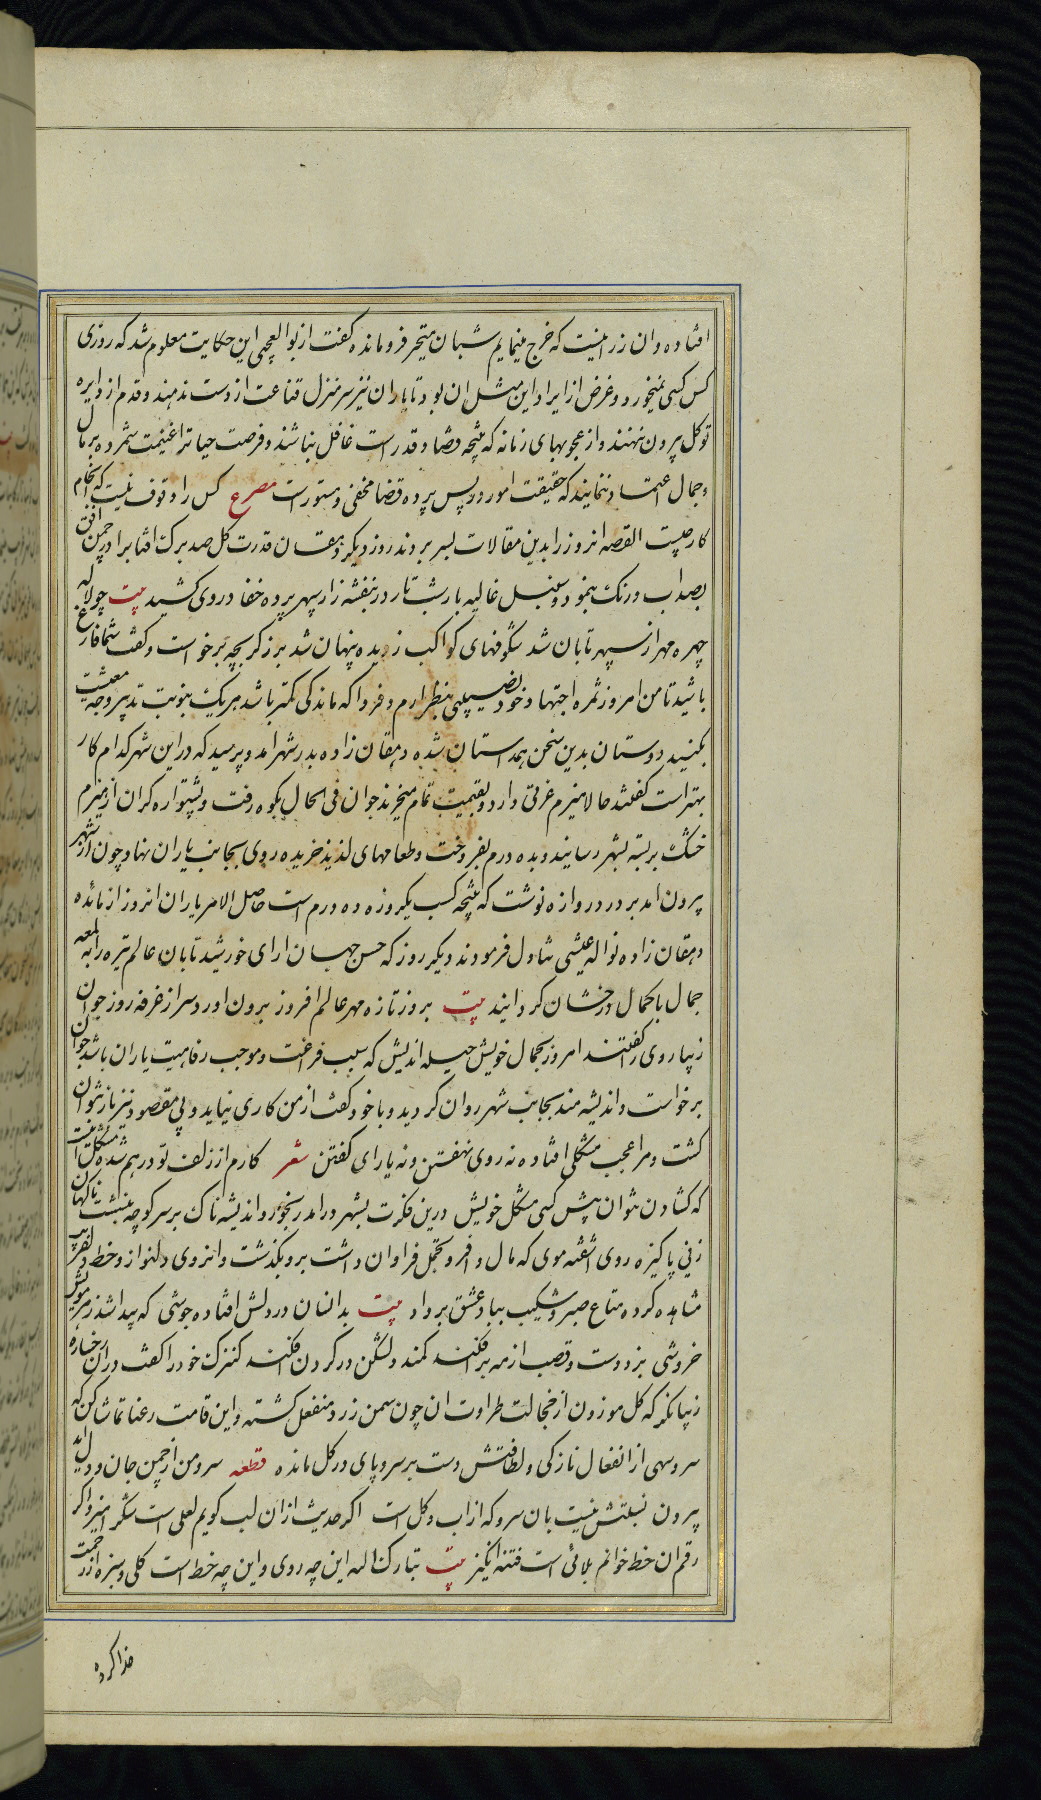 افتاده وان زر اینست که خرج مینمایم شبان متحیر فرو مانده کفت از بوالعجبی این حکایت معلوم شد که روزی
کس کسی نمیخورد و غرض از ایراد این مثل ان بود تا یاران نیز سر منزل قناعت از دست ندهند و قدم از دایره
توکل بیرون ننهند و از عجوبهای زمانه که نتیجه قضا و قدر است غافل نباشند و فرصت حیاترا غنیمت شمرده بر مال
و جمال اعتماد ننمایند که حقیقت امور در پس پرده قضا مخفی و مستور است مصرع کس را وقوف نیست که انجام
کار چیست القصه انروز را بدین مقالات بسر بردند روز دیکر که دهقان قدرت کل صد برک افتابرا در چمن افق
بصد اب و رنک بنمود و سنبل غالیه بار شب تار در بنفشه زار سپهر پرده خفا در روی کشید بیت چو لاله
چهره مهر از سپهر تابان شد شکوفهای کواکب ز دیده پنهان شد برزکر بچه برخواست و کفت شما فارغ
باشید تا من امروز ثمره اجتهاد خود نصیبی بنظر ارم و فردا که ماندکی کمتر باشد هریک بنوبت تدبیر وجه معیشت
بکنید دوستان بدین سخن همداستان شده دهقان زاده بدر شهر امد و پرسید که در این شهر کدام کار
بهتر است کفتند حالا هیزم عزتی دارد و بقیمت تمام میخرند جوان فی الحال بکوه رفت و پشتواره کران از هیزم
خشک بربسته بشهر رسانید و بده درم بفروخت و طعامهای لذیذ خریده روی بجانب یاران نهاد و چون از شهر
بیرون امد بر در دروازه نوشت که نتیجه کسب یکروزه ده درم است حاصل الامر یاران انروز از مائده
دهقان زاده نواله عیشی تناول فرمودند دیکر روز که حسن جهان ارای خورشید تابان عالم تیره را به لمعه
جمال با کمال درخشان کردانید بیت بروز تازه مهر عالم افروز برون اورد سر از غرفه روز جوان
زیبا روی را کفتند امروز بجمال خویش حیله اندیش که سبب فراغت و موجب رفاهیت یاران باشد جوان
برخواست و اندیشه مند بجانب شهر روان کردید و با خود کفت از من کاری نیاید و بی مقصود نیز باز نتوان
کشت و مرا عجب مشکلی افتاده نه روی نهفتن و نه یارای کفتن شعر کارم از زلف تو درهم شده مشکل اینست
که کشادن نتوان پیش کسی مشکل خویش درین فکرت بشهر درامد رنجور و اندیشه ناک بر سر کوچه بنشست ناکهان
زنی پاکیزه روی اشفته موی که مال وافر و تجمل فراوان داشت برو بکذشت و انروی دلنواز و خط دلفریب
مشاهده کرده متاع صبر و شکیب بباد عشق برداد بیت بدانسان در دلش افتاده جوشی که پیدا شد ز هر مویش
خروشی بزد دست و قصب از مه برافکند کمند دلشکن در کردن افکند کنیزک خود را کفت در ان رخساره
زیبا نکر که کل موزون از خجالت طراوت ان چون سمن زرد منفعل کشته و این قامت رعنا تماشا کن که
سرو سهی از انفعال نازکی و لطافتش دست بر سر و پای در کل مانده قطعه سرو من از چمن جان و دل اید
بیرون نسبتش نیست بان سرو که از اب و کل است اکر حدیث ازان لب کویم لعلی است شکر امیز و اکر
رقم ان خط خوانم بلائی است فتنه انکیز بیت تبارک الله این چه روی و این چه خط است کلی و سبزه از رحمت
خدا کرده